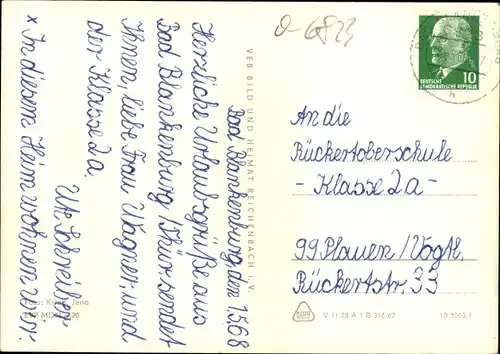 Bad Blankenburg, den 1.5.68
Herzliche Urlaubsgrüße aus
Bad Blankenburg/Thür. sendet
Ihnen, liebe Frau Wagner, und
der Klasse 2a.
Ute Schreiter
x In diesem Heim wohnen wir.
VEB BILD UND HEIMAT REICHENBACH I. V.
10
DEUTSCHE
DEMOKRATISCHE REPUBLIK
An die
Rückertoberschule
- Klasse 2a -
99 Plauen/Vogtl.
Rückertstr. 33
Foto: Jena
EVP MDN 0,20
V 11 28 A 1 B 316 67